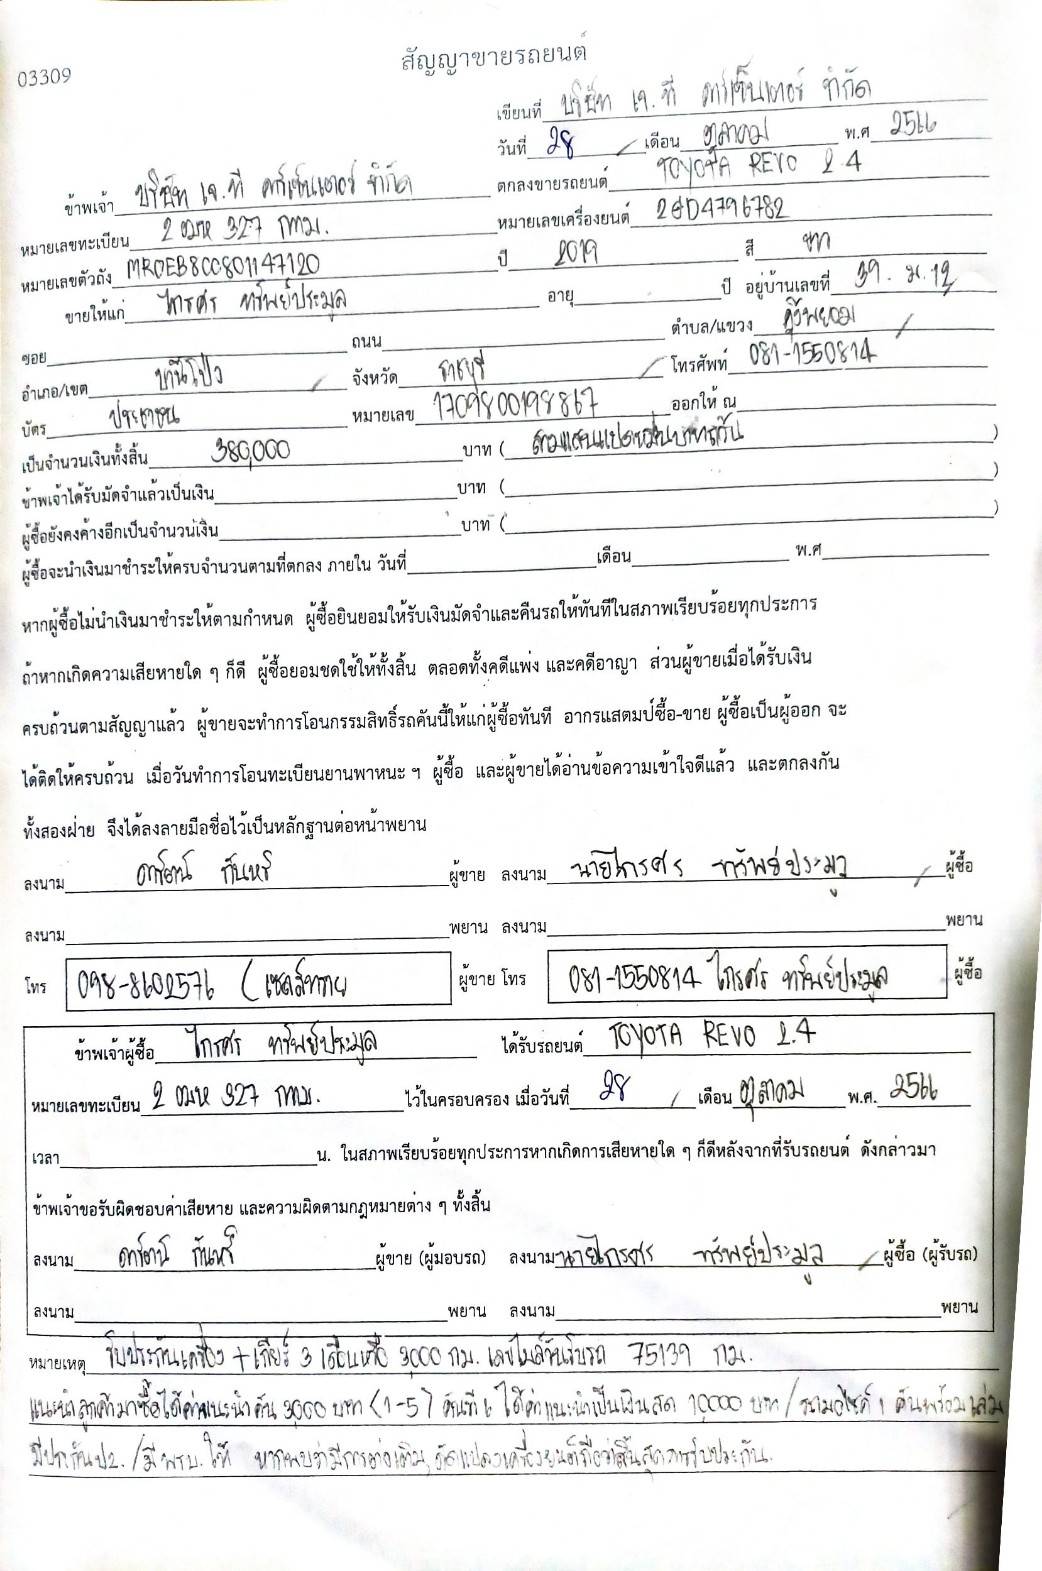 03309
สัญญาขายรถยนต์
เขียนที่ บริษัท เจ.ที คาร์เซ็นเตอร์ จำกัด
วันที่ 28 / เดือน ตุลาคม พ.ศ 2566
ข้าพเจ้า บริษัท เจ.ที คาร์เซ็นเตอร์ จำกัด ตกลงขายรถยนต์ TOYOTA REVO 2.4
หมายเลขทะเบียน 2 ฒห 327 กทม. หมายเลขเครื่องยนต์ 2GD4796782
หมายเลขตัวถัง MR0EB8CC801147120 ปี 2019 สี
ขายให้แก่ ไกรศร ทรัพย์ประมูล อายุ ปี อยู่บ้านเลขที่ 39. ม.12
ซอย ถนน ตำบล/แขวง คุ้งพยอม /
อำเภอ/เขต บ้านโป่ง / จังหวัด ราชบุรี / โทรศัพท์ 081-1550814
บัตร ประชาชน หมายเลข 1709800198867 ออกให้ ณ
เป็นจำนวนเงินทั้งสิ้น 380,000 บาท ( สามแสนแปดหมื่นบาทถ้วน )
ข้าพเจ้าได้รับมัดจำแล้วเป็นเงิน บาท ( )
ผู้ซื้อยังคงค้างอีกเป็นจำนวนเงิน บาท ( )
ผู้ซื้อจะนำเงินมาชำระให้ครบจำนวนตามที่ตกลง ภายใน วันที่ เดือน พ.ศ
หากผู้ซื้อไม่นำเงินมาชำระให้ตามกำหนด ผู้ซื้อยินยอมให้รับเงินมัดจำและคืนรถให้ทันทีในสภาพเรียบร้อยทุกประการ
ถ้าหากเกิดความเสียหายใด ๆ ก็ดี ผู้ซื้อยอมชดใช้ให้ทั้งสิ้น ตลอดทั้งคดีแพ่ง และคดีอาญา ส่วนผู้ขายเมื่อได้รับเงิน
ครบถ้วนตามสัญญาแล้ว ผู้ขายจะทำการโอนกรรมสิทธิ์รถคันนี้ให้แก่ผู้ซื้อทันที อากรแสตมป์ซื้อ-ขาย ผู้ซื้อเป็นผู้ออก จะ
ได้ติดให้ครบถ้วน เมื่อวันทำการโอนทะเบียนยานพาหนะ ฯ ผู้ซื้อ และผู้ขายได้อ่านข้อความเข้าใจดีแล้ว และตกลงกัน
ทั้งสองฝ่าย จึงได้ลงลายมือชื่อไว้เป็นหลักฐานต่อหน้าพยาน
ลงนาม ผู้ขาย ลงนาม นายไกรศร ทรัพย์ประมูล / ผู้ซื้อ
ลงนาม พยาน ลงนาม พยาน
โทร 098-8602576 ( ผู้ขาย โทร 081-1550814 ไกรศร ทรัพย์ประมูล ผู้ซื้อ
ข้าพเจ้าผู้ซื้อ ไกรศร ทรัพย์ประมูล ได้รับรถยนต์ TOYOTA REVO 2.4
หมายเลขทะเบียน 2 ฒห 327 กทม. ไว้ในครอบครอง เมื่อวันที่ 28 / เดือน ตุลาคม พ.ศ. 2566
เวลา น. ในสภาพเรียบร้อยทุกประการหากเกิดการเสียหายใด ๆ ก็ดีหลังจากที่รับรถยนต์ ดังกล่าวมา
ข้าพเจ้าขอรับผิดชอบค่าเสียหาย และความผิดตามกฎหมายต่าง ๆ ทั้งสิ้น
ลงนาม ผู้ขาย (ผู้มอบรถ) ลงนาม นายไกรศร ทรัพย์ประมูล / ผู้ซื้อ (ผู้รับรถ)
ลงนาม พยาน ลงนาม พยาน
หมายเหตุ รับประกันเครื่อง + เกียร์ 3 เดือนหรือ 3000 กม. เลขไมล์วันรับรถ 75139 กม.
แนะนำลูกค้ามาซื้อได้ค่าแนะนำคัน 3000 บาท (1-5) คันที่ 6 ได้ค่าแนะนำเป็นเงินสด 10,000 บาท / รถมอไซค์ 1 คันพร้อมเล่ม
มีประกันป2. / มี พรบ. ให้ หากพบว่ามีการต่อเติม, ดัดแปลงเครื่องยนต์ถือว่าสิ้นสุดการรับประกัน.